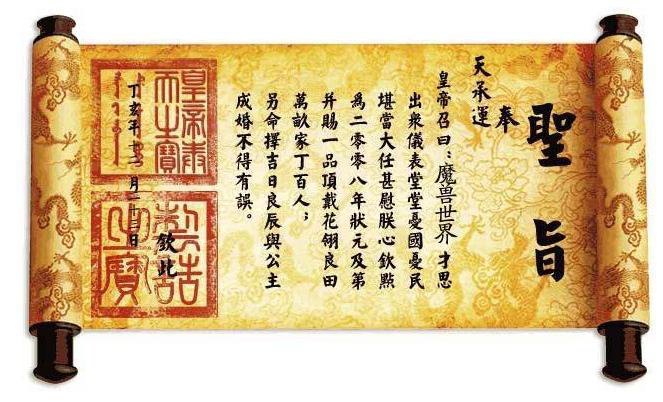 聖旨
奉
天承運
皇帝召曰：魔兽世界才思
出衆儀表堂堂憂國憂民
堪當大任甚慰朕心欽點
爲二零零八年狀元及第
并賜一品頂戴花翎良田
萬畝家丁百人；
另命擇吉日良辰與公主
成婚不得有誤。
欽此
丁亥年十二月二十三日
皇帝奉
天之寶
制誥
之寶